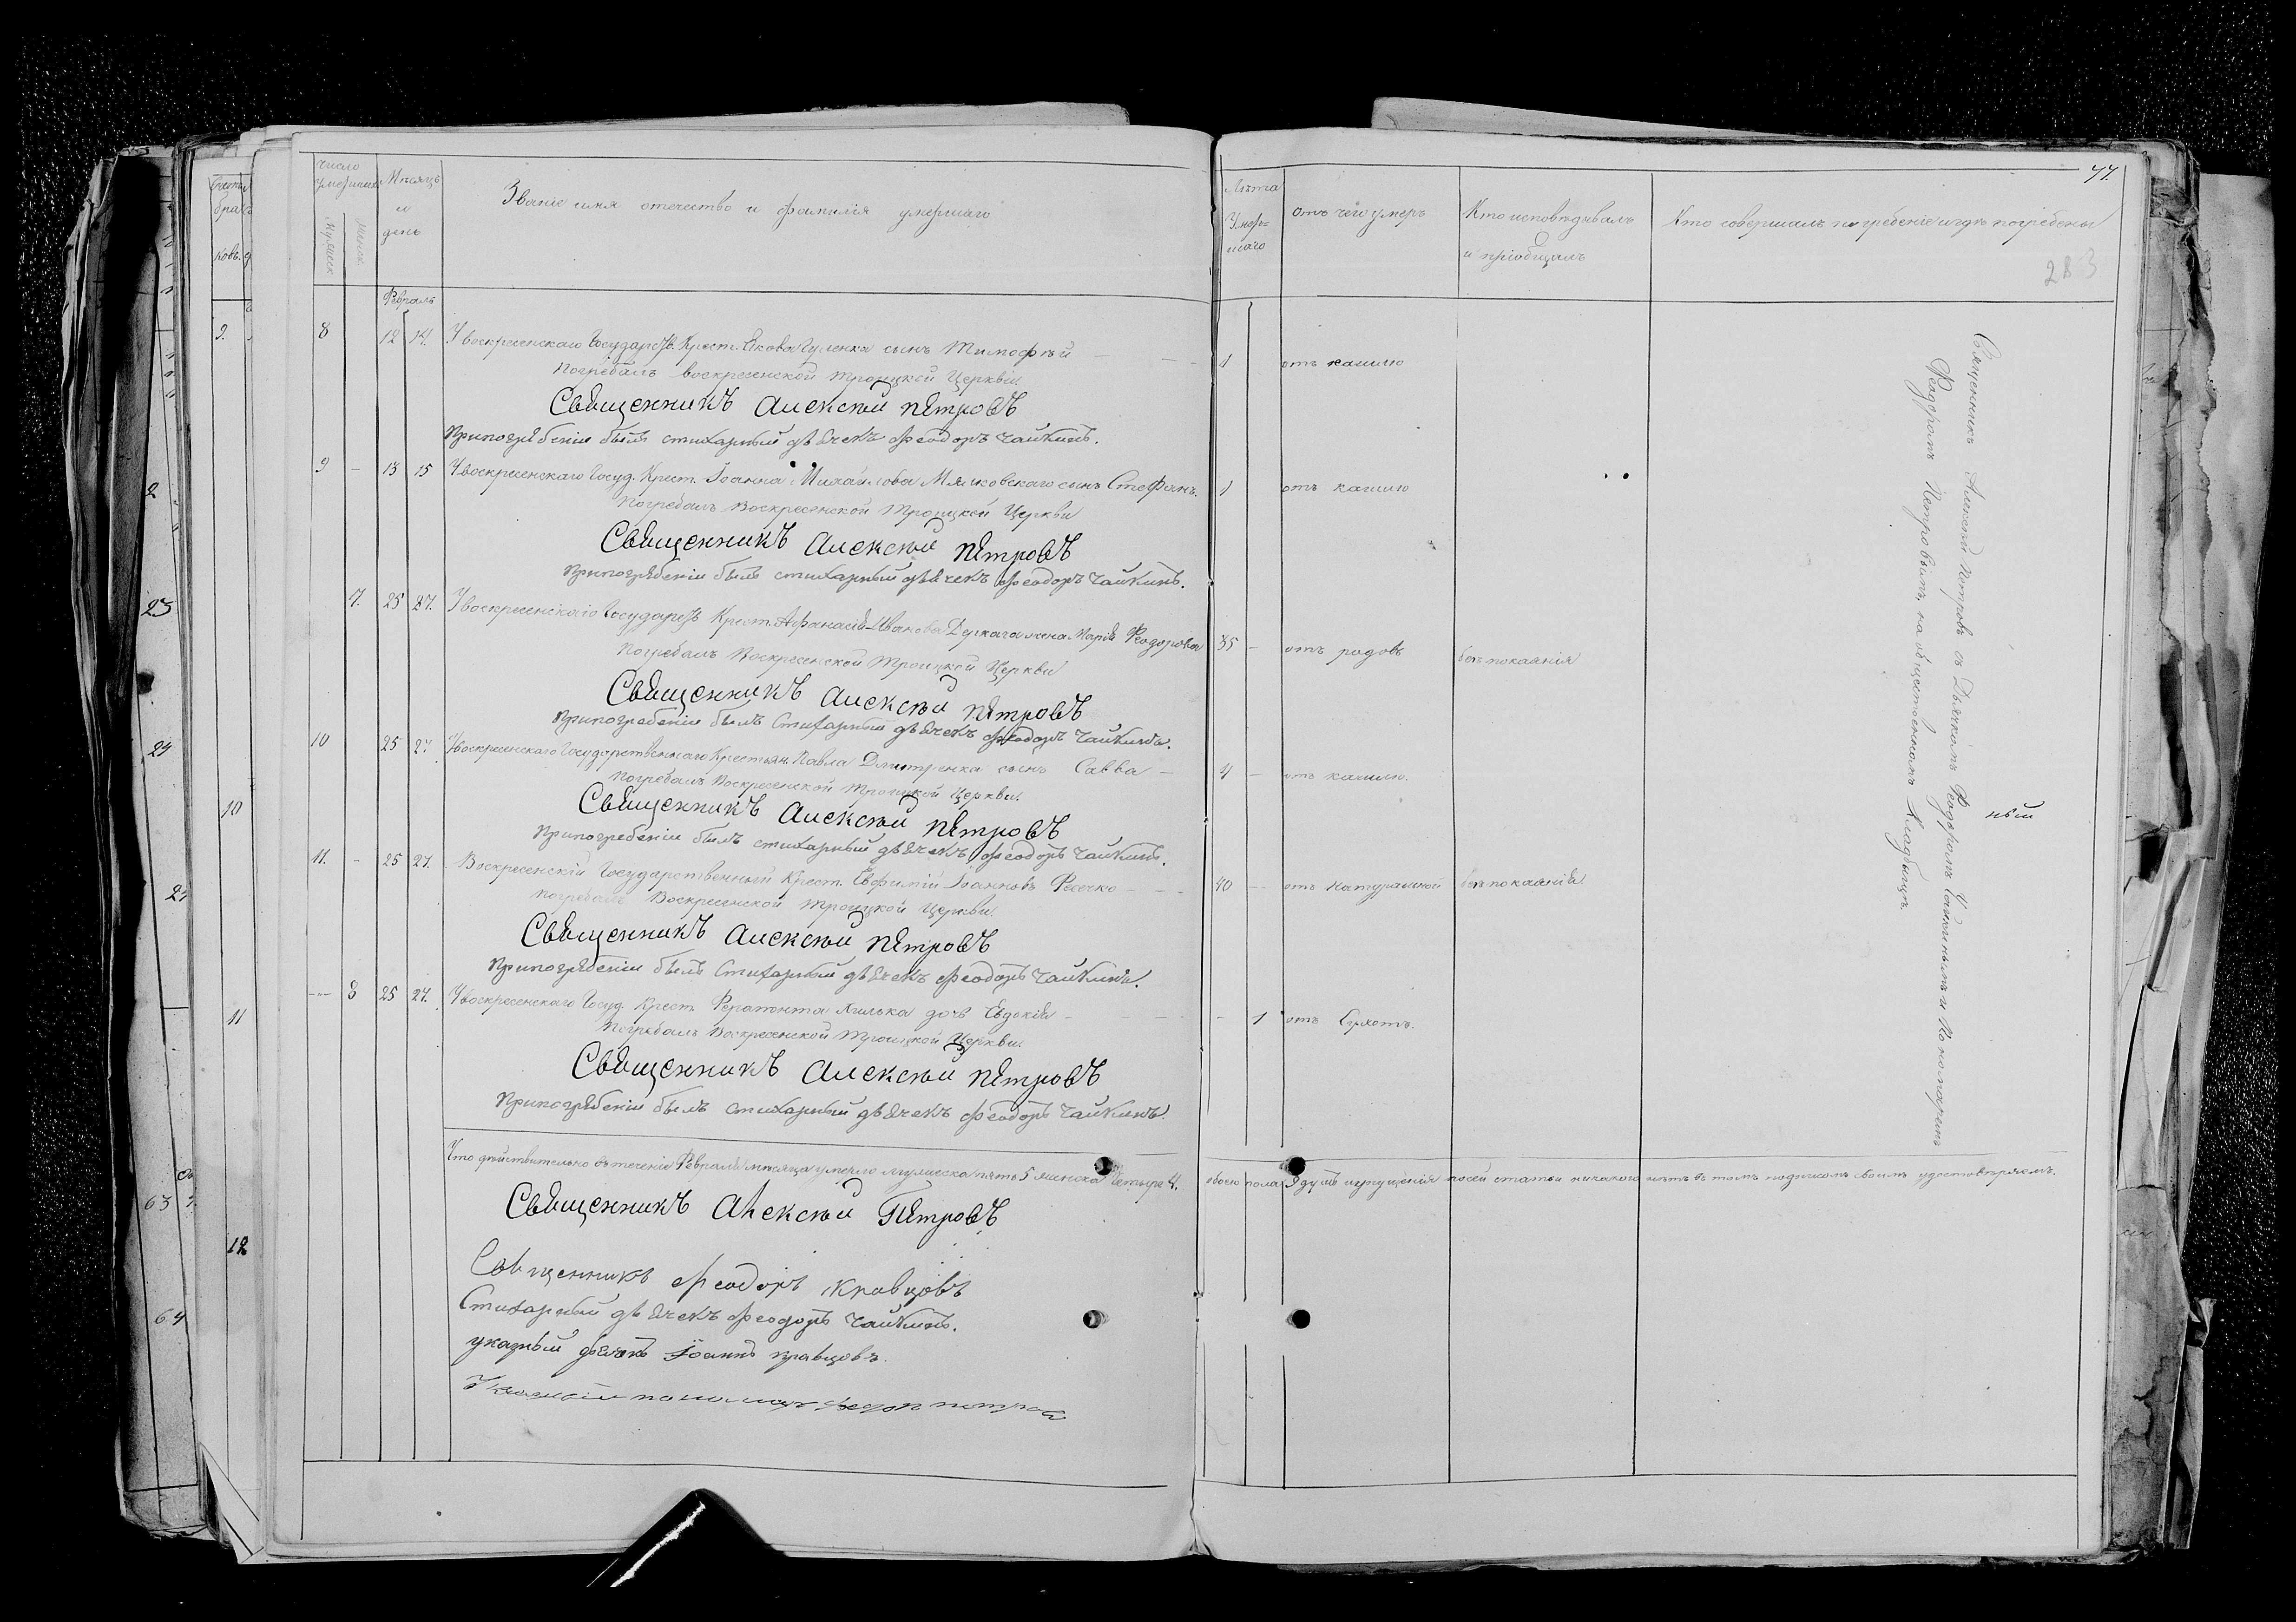 Число умершихъ
Мужеск
Женск
Мѣсяцъ и день
Званіе имя отечество и фамилія умершаго
Лѣта Умер=шаго
отъ чего умеръ
Кто исповѣдывалъ и пріобщалъ
Кто совершалъ погребеніе и гдѣ погребены
77.
283
Февраль
8 12 14. У воскресенскаго Государств. Крест. Якова Гуленка сынъ Тимофѣй 1 отъ кашлю
Погребалъ воскресенской Троицкой Церкви
Священникъ Алексѣй Петровъ
При погребеніи былъ стихарный дьячекъ Феодоръ Чайкинъ.
9 – 13 15 У воскресенскаго Госуд. Крест. Іоанна Михайлова сынъ Стефанъ. 1 отъ кашлю
Погребалъ Воскресенской Троицкой Церкви
Священникъ Алексѣй Петровъ
При погребеніи былъ стихарный дьячекъ Феодоръ Чайкинъ.
7. 25 27. У воскресенскаго Государств Крест. Афанасія Иванова Деркага жена Марія Феодорова 35 – отъ родовъ безъ покаянія
Погребалъ Воскресенской Троицкой Церкви
Священникъ Алексѣй Петровъ
При погребеніи былъ Стихарный дьячекъ Феодоръ Чайкинъ.
10 25 27 У воскресенскаго Государственнаго Крестьян. Павла Дмитренка сынъ Савва – 4 – отъ кашлю.
Погребалъ Воскресенской Троицкой Церкви.
Священникъ Алексѣй Петровъ
При погребеніи былъ стихарный дьячекъ Феодоръ Чайкинъ.
11. – 25 27. Воскресенскій Государственный Крест. Евфимій Іоанновъ 40 – отъ натуральной безъ покаянія
Погребалъ Воскресенской Троицкой Церкви.
Священникъ Алексѣй Петровъ
При погребеніи былъ Стихарный дьячекъ Феодоръ Чайкинъ.
– 8 25 27. У воскресенскаго Госуд. Крест. дочь Евдокія – 1 отъ Сухотъ.
Погребалъ Воскресенской Троицкой Церкви.
Священникъ Алексѣй Петровъ
При погребеніи былъ стихарный дьячекъ Феодоръ Чайкинъ.
Священникъ Алексѣй Петровъ съ Дьячкомъ Феодоромъ Чайкинымъ и Пономаремъ
Феодоромъ Петровымъ, на общественномъ Кладбищѣ.
ный
Что дѣйствительно въ теченіи Февраля мѣсяца умерло мужеска пять 5 женска Четыре 4. обоего пола 9 душъ и упущенія по сей статьи никакого нѣтъ въ томъ подписомъ своимъ удостовѣряемъ.
Священникъ Алексѣй Петровъ
Священникъ Феодоръ Кравцовъ
Стихарный дьячекъ Феодоръ Чайкинъ.
указный дьячокъ Іоаннъ Кравцовъ.
Указный пономарь Федоръ Петровъ
2
23
24
63
64
9.
10
11
12